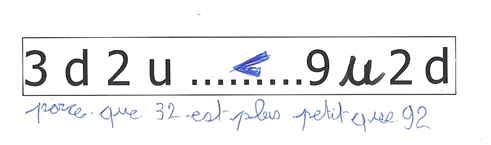 3 d 2 u ......<......9 u 2 d
parce que 32 est plus petit que 92